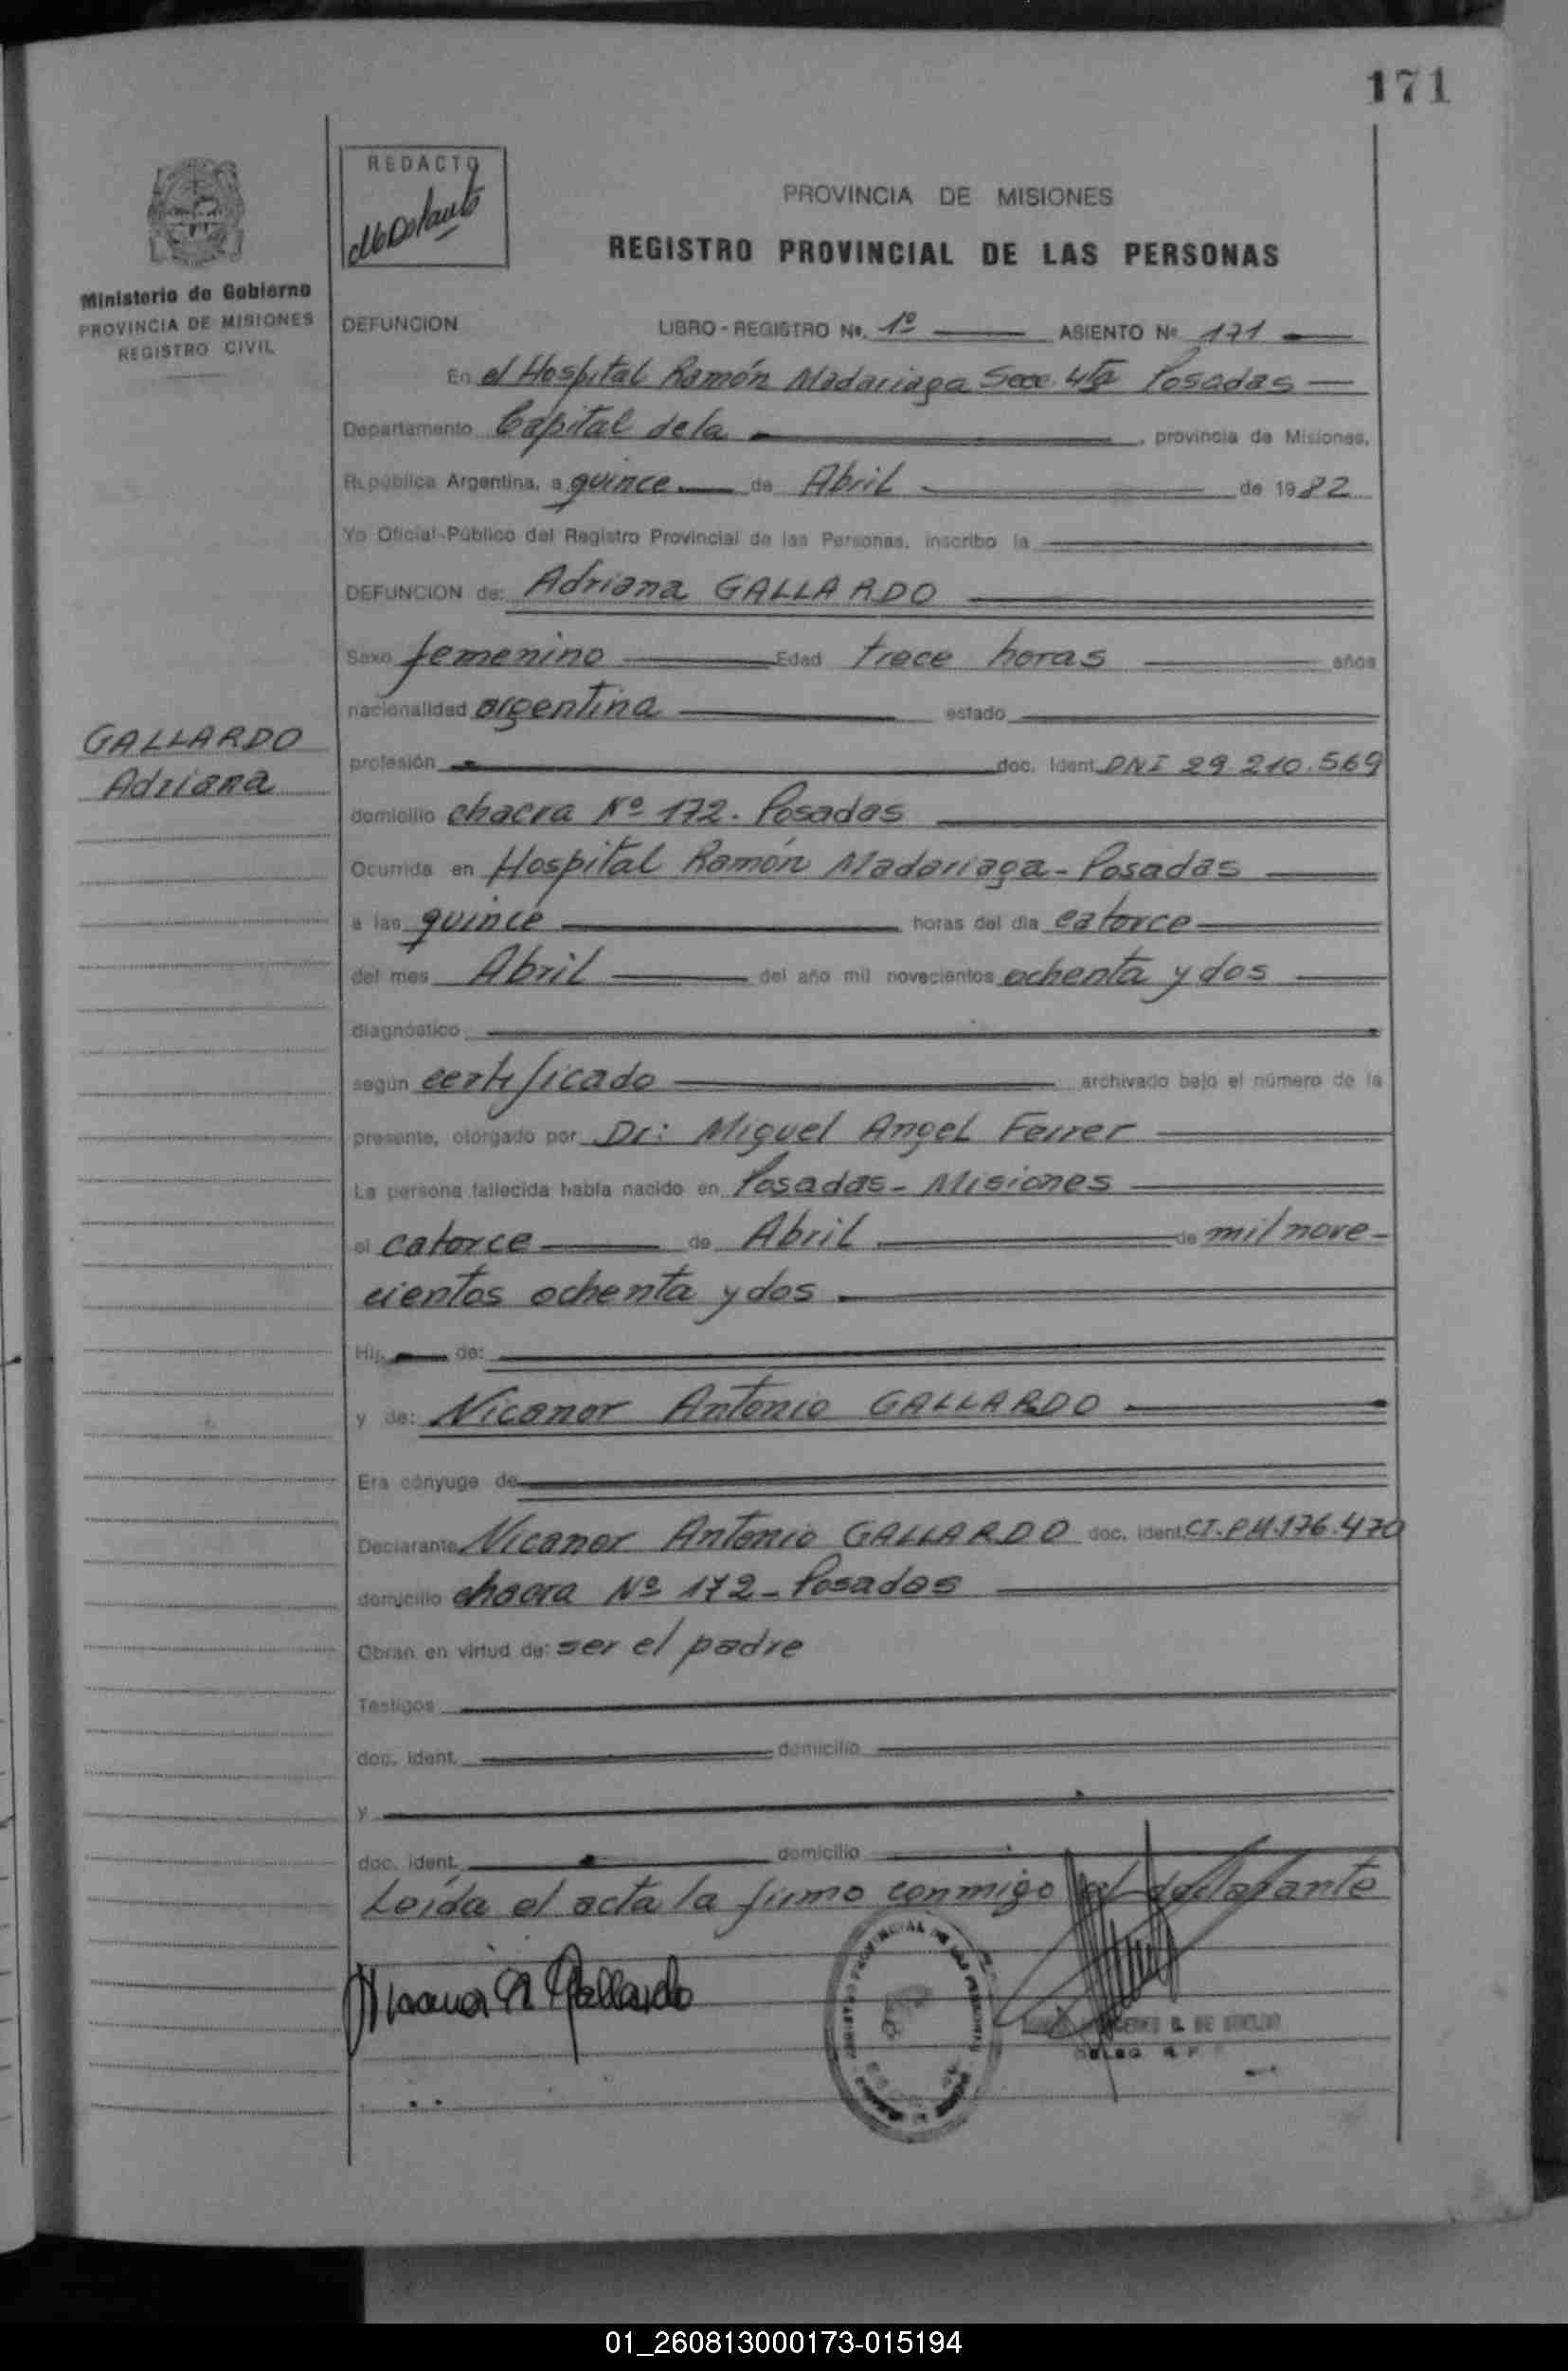 171
REDACTO
PROVINCIA DE MISIONES
REGISTRO PROVINCIAL DE LAS PERSONAS
Ministerio de Gobierno
PROVINCIA DE MISIONES
REGISTRO CIVIL
DEFUNCION LIBRO - REGISTRO Nº. 1º ASIENTO Nº 171
En el Hospital Ramón Madariaga Secc. 4ta Posadas
Departamento Capital de la , provincia de Misiones,
República Argentina, a quince de Abril de 1982
Yo Oficial Público del Registro Provincial de las Personas, inscribo la
DEFUNCION de: Adriana GALLARDO
Sexo femenino Edad trece horas años
nacionalidad argentina estado
GALLARDO
Adriana
profesión doc. Ident. DNI 29.210.569
domicilio chacra Nº 172. Posadas
Ocurrida en Hospital Ramón Madariaga - Posadas
a las quince horas del día catorce
del mes Abril del año mil novecientos ochenta y dos
diagnóstico
según certificado archivado bajo el número de la
presente, otorgado por Dr: Miguel Angel Ferrer
La persona fallecida había nacido en Posadas - Misiones
el catorce de Abril de mil nove-
cientos ochenta y dos
Hij de:
y de: Nicanor Antonio GALLARDO
Era cónyuge de
Declarante Nicanor Antonio GALLARDO doc. ident. CI. PM. 176.470
domicilio chacra Nº 172 - Posadas
Obran en virtud de: ser el padre
Testigos
doc. ident. domicilio
y
doc. ident. domicilio
Leída el acta la firmo conmigo el declarante
Nicanor A Gallardo
01_260813000173-015194